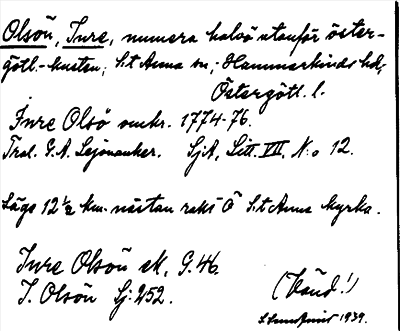 Olsön, Inre, numera halvö utanför öster-
götl.-kusten, S:t Anna sn, Hammarkinds hd,
Östergötl. l.
Inre Olsö omkr. 1774-76.
Trol. G.A. Lejonanker. SjA, Litt. VII, N:o 12.
Lägs 12½ km. nästan rakt Ö S:t Anna kyrka.
Inre Olsön ek, G.46.
I. Olsön Sj: 252.
(Vänd!)
1939.